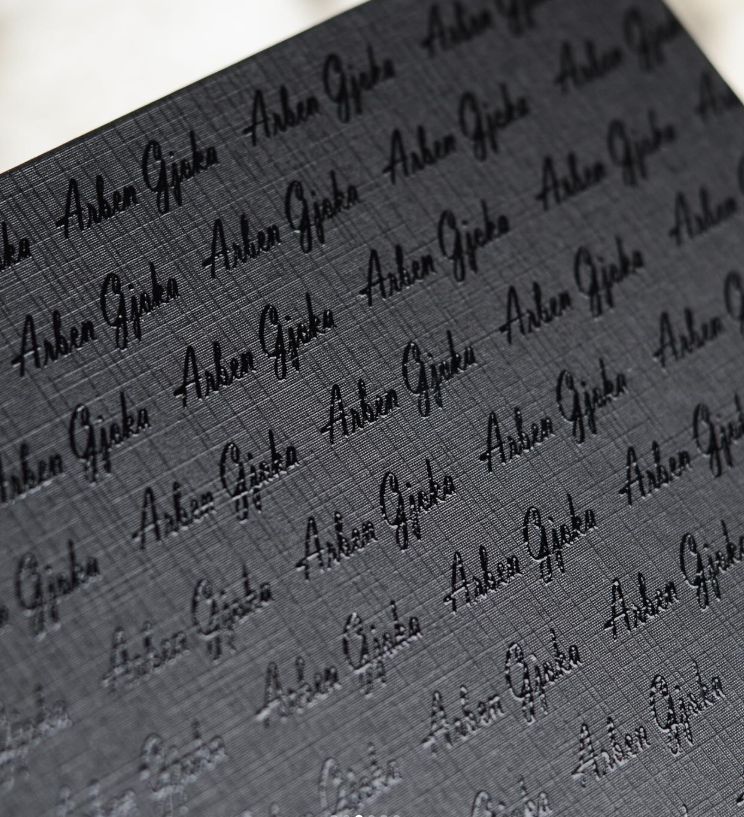 Arben Gjoka
Arben Gjoka Arben Gjoka Arben Gjoka
Arben Gjoka Arben Gjoka Arben Gjoka
Arben Gjoka Arben Gjoka Arben Gjoka
Arben Gjoka Arben Gjoka Arben Gjoka Arben
Gjoka Arben Gjoka Arben Gjoka Arben Gjoka
Arben Gjoka Arben Gjoka Arben Gjoka
Arben Gjoka Arben Gjoka Arben Gjoka
Gjoka Arben Gjoka